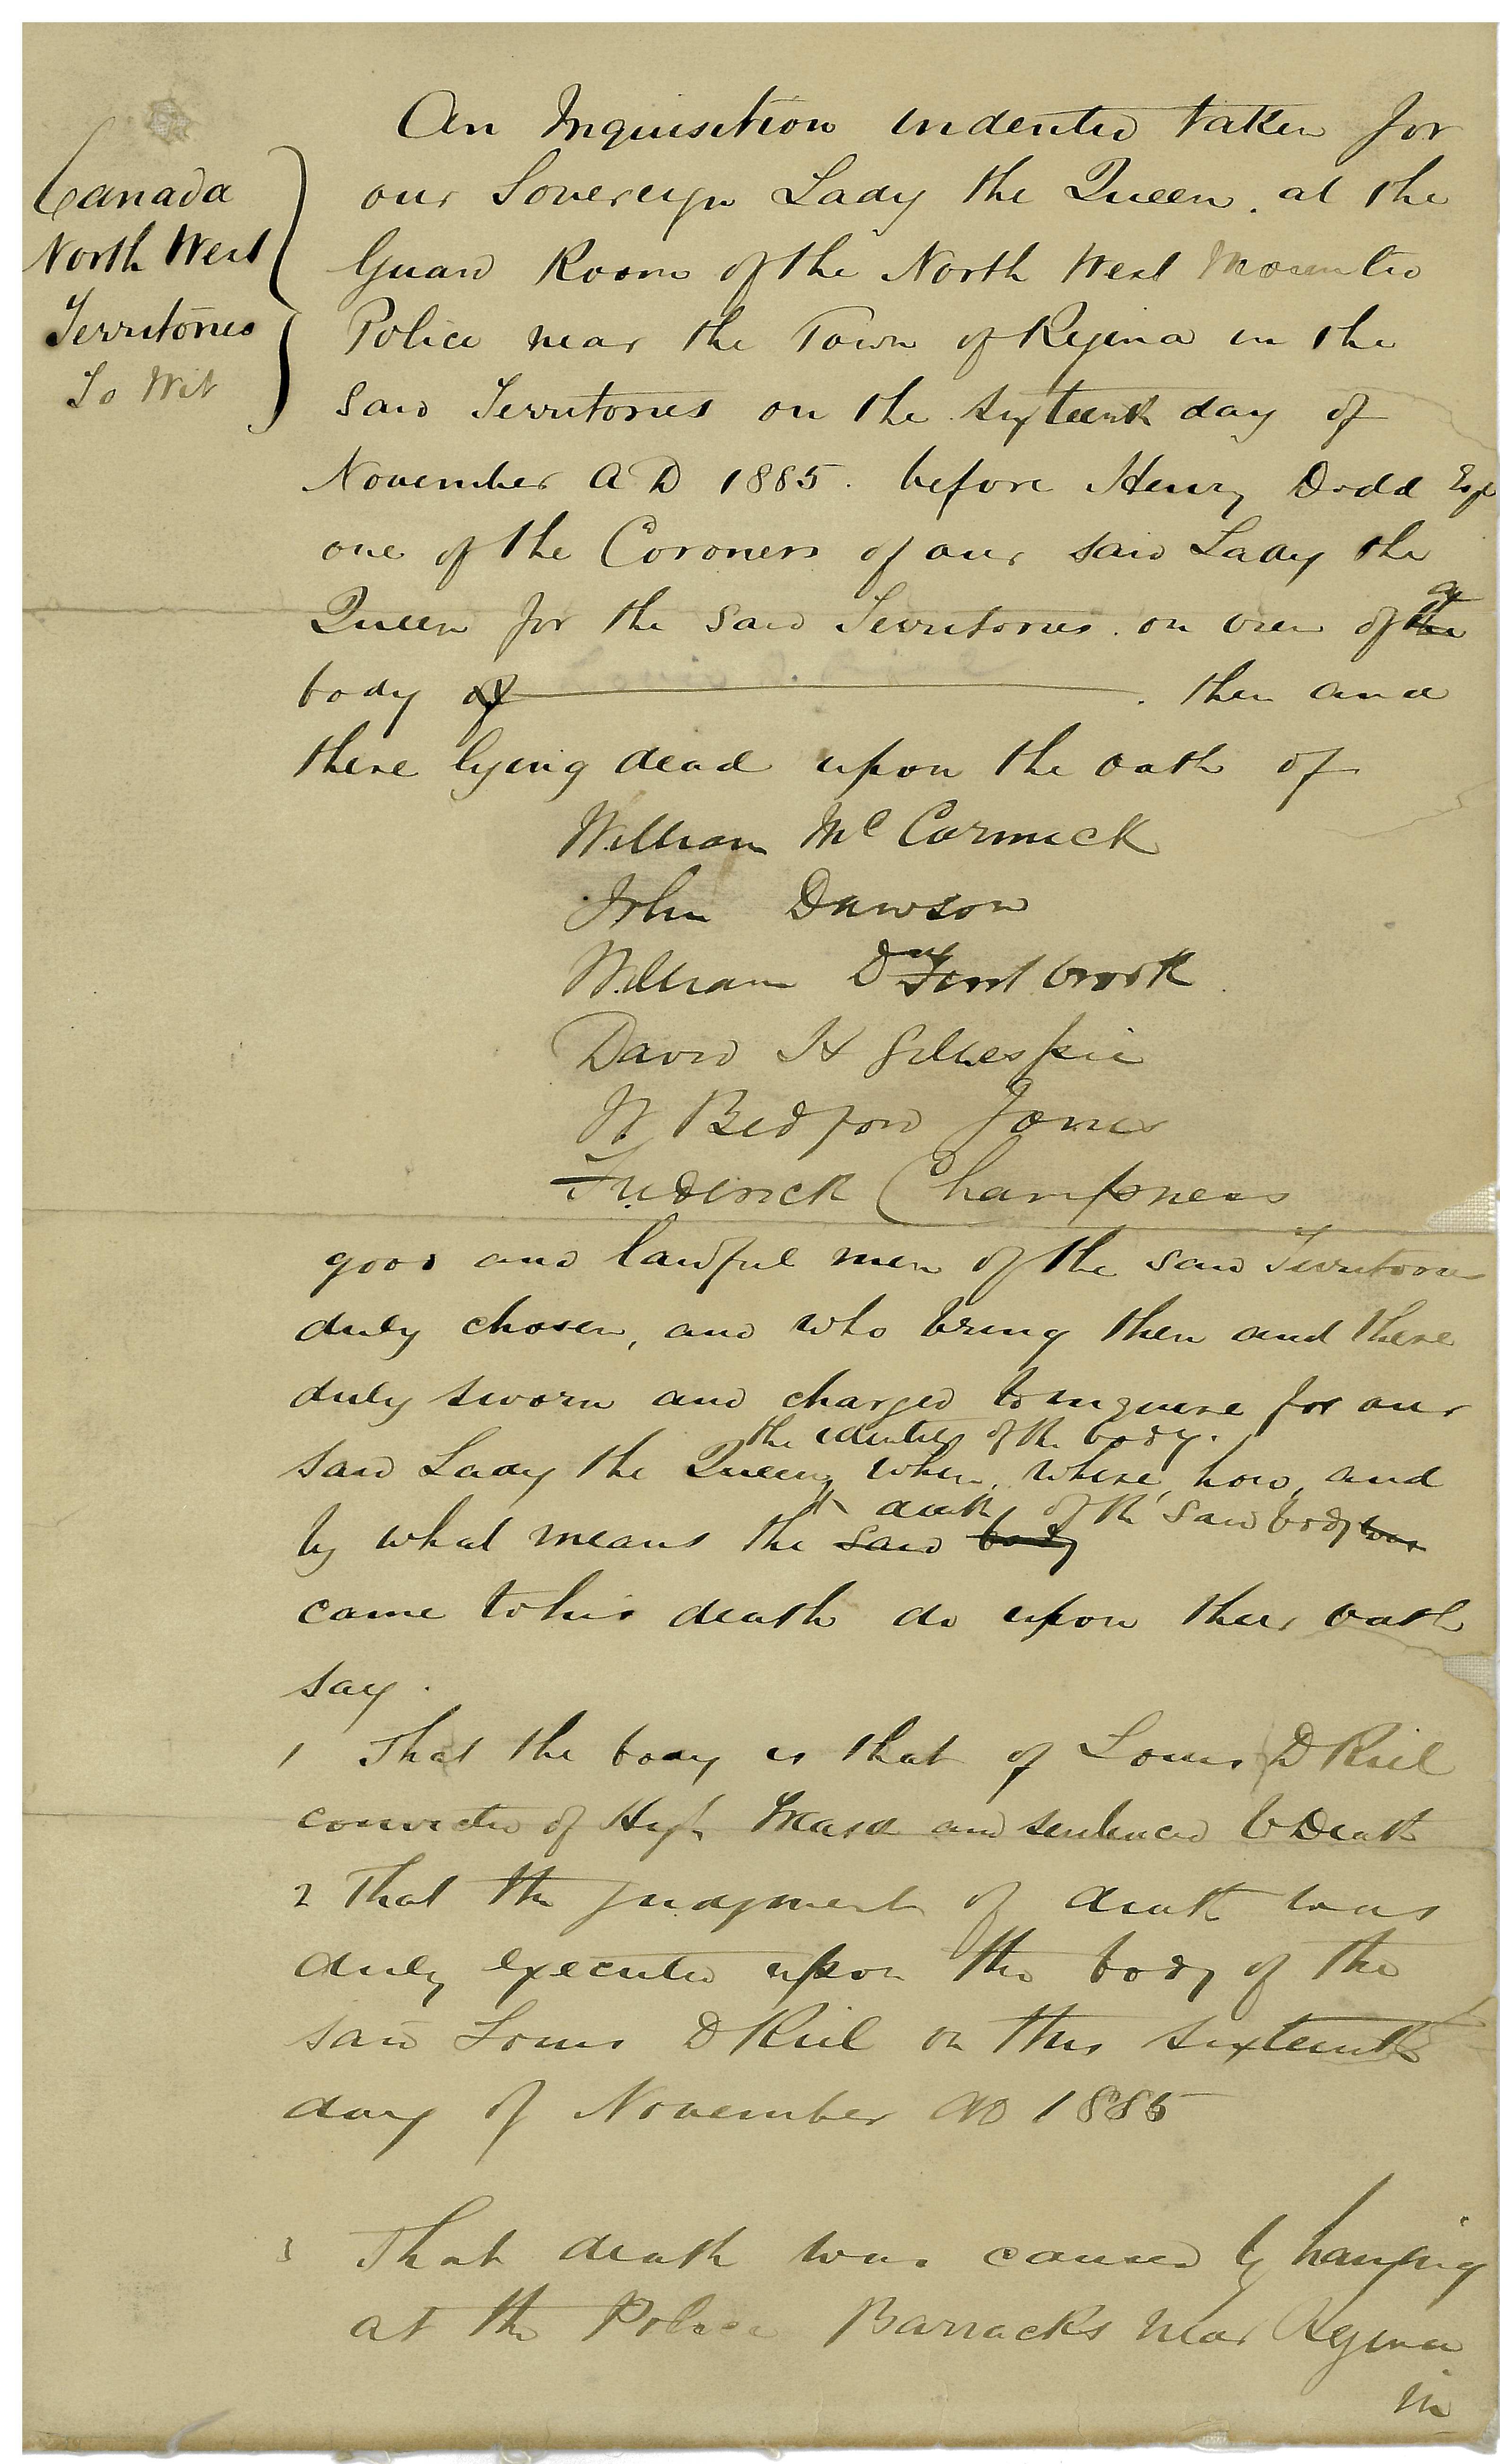 Canada
North West
Territories
To Wit
An Inquisition indented taken for
our Sovereign Lady the Queen. at the
Guard Room of the North West Mounted
Police near the Town of Regina in the
Said Territories on the sixteenth day of
November A D 1885. before Henry Dodd Esq
one of the Coroners of our said Lady the
Queen for the said Territories. on view of the a
body of . then and
there lying dead upon the oath of
William Mc Cormick
John Dawson
William D
David H Gillespie
W Bedford Jones
Frederick Champness
good and lawful men of the said Territories
duly chosen, and who being then and there
duly sworn and charged to inquire for our
the identity of the body.
said Lady the Queen, when, where, how, and
death of the said body was
by what means the said body
came to his death do upon their oath
say.
1 That the body is that of Louis D Riel
convicted of High Treason and sentenced to Death
2 That the judgment of death was
duly executed upon the body of the
said Louis D Riel on this sixteenth
day of November AD 1885
3 That death was caused by hanging
at the Police Barracks near Regina
in